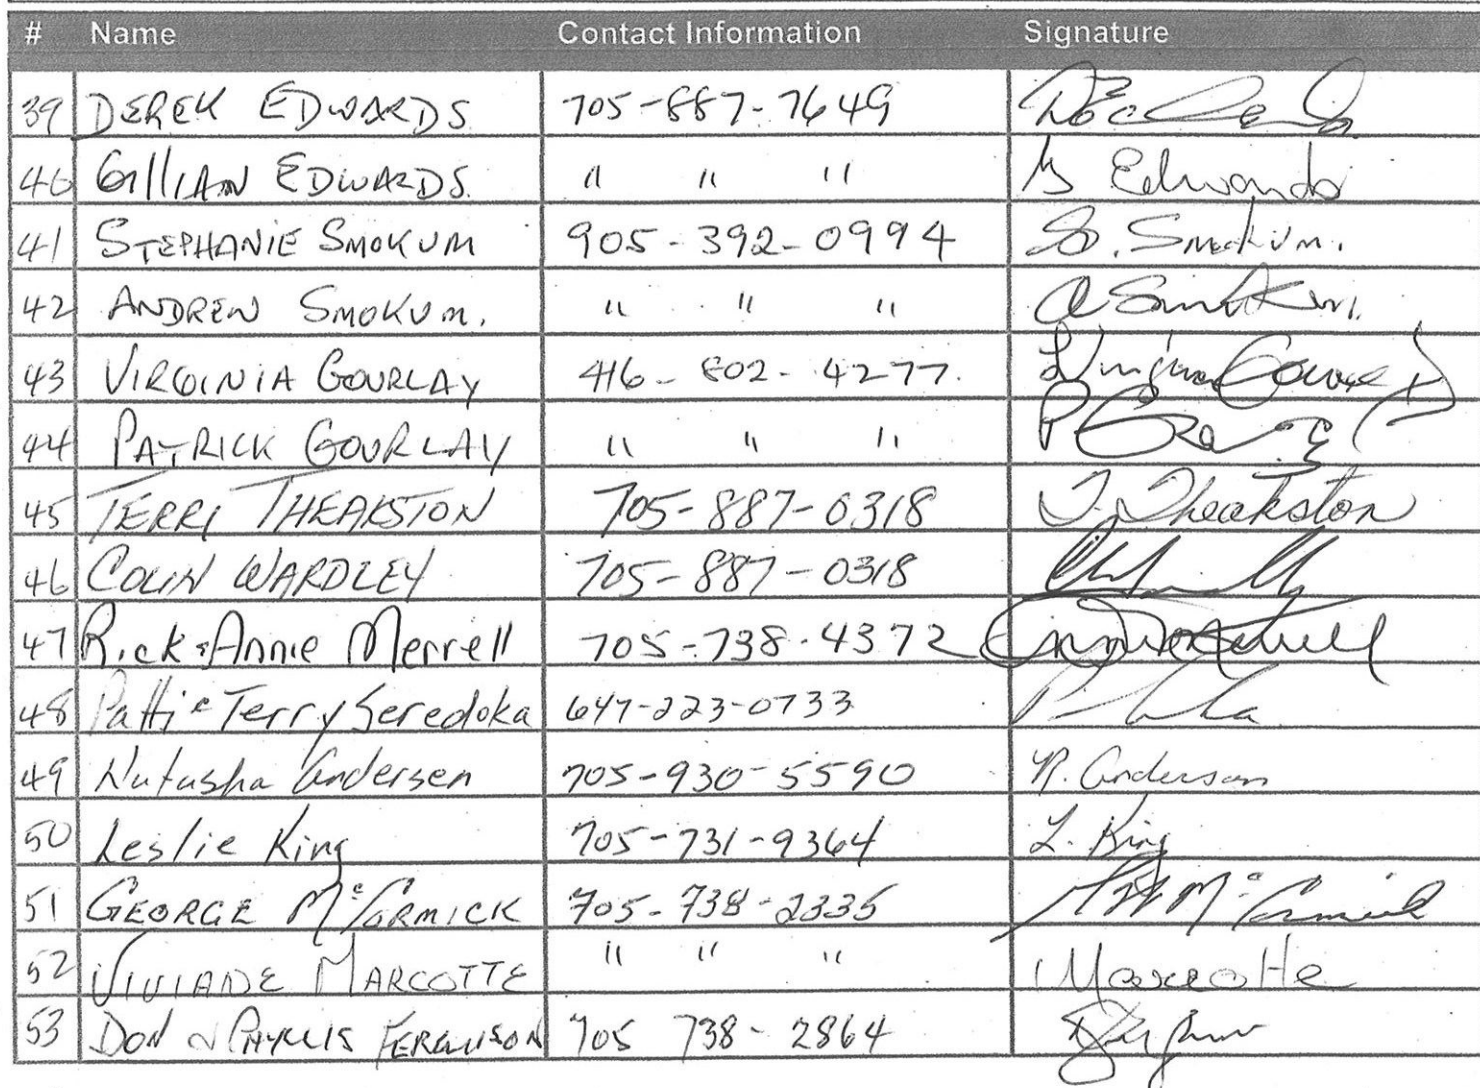 # Name Contact Information Signature
39 DEREK EDWARDS 705-887-7649
40 GILLIAN EDWARDS. " " " G Edwards
41 STEPHANIE SMOKUM 905-392-0994 S. Smokum.
42 ANDREW SMOKUM. " " " A Smokum.
43 VIRGINIA GOURLAY 416-802-4277. Virginia Gourlay
44 PATRICK GOURLAY " " "
45 TERRI THEAKSTON 705-887-0318 T. Theakston
46 COLIN WARDLEY 705-887-0318
47 Rick & Annie Merrell 705-738-4372
48 Patti & Terry Seredoka 647-223-0733
49 Natasha Andersen 705-930-5590 N. Andersen
50 Leslie King 705-731-9364 L. King
51 GEORGE McCORMICK 705-738-2335 McCormick
52 VIVIANE MARCOTTE " " " Marcotte
53 DON & PHYLLIS FERGUSON 705 738-2864